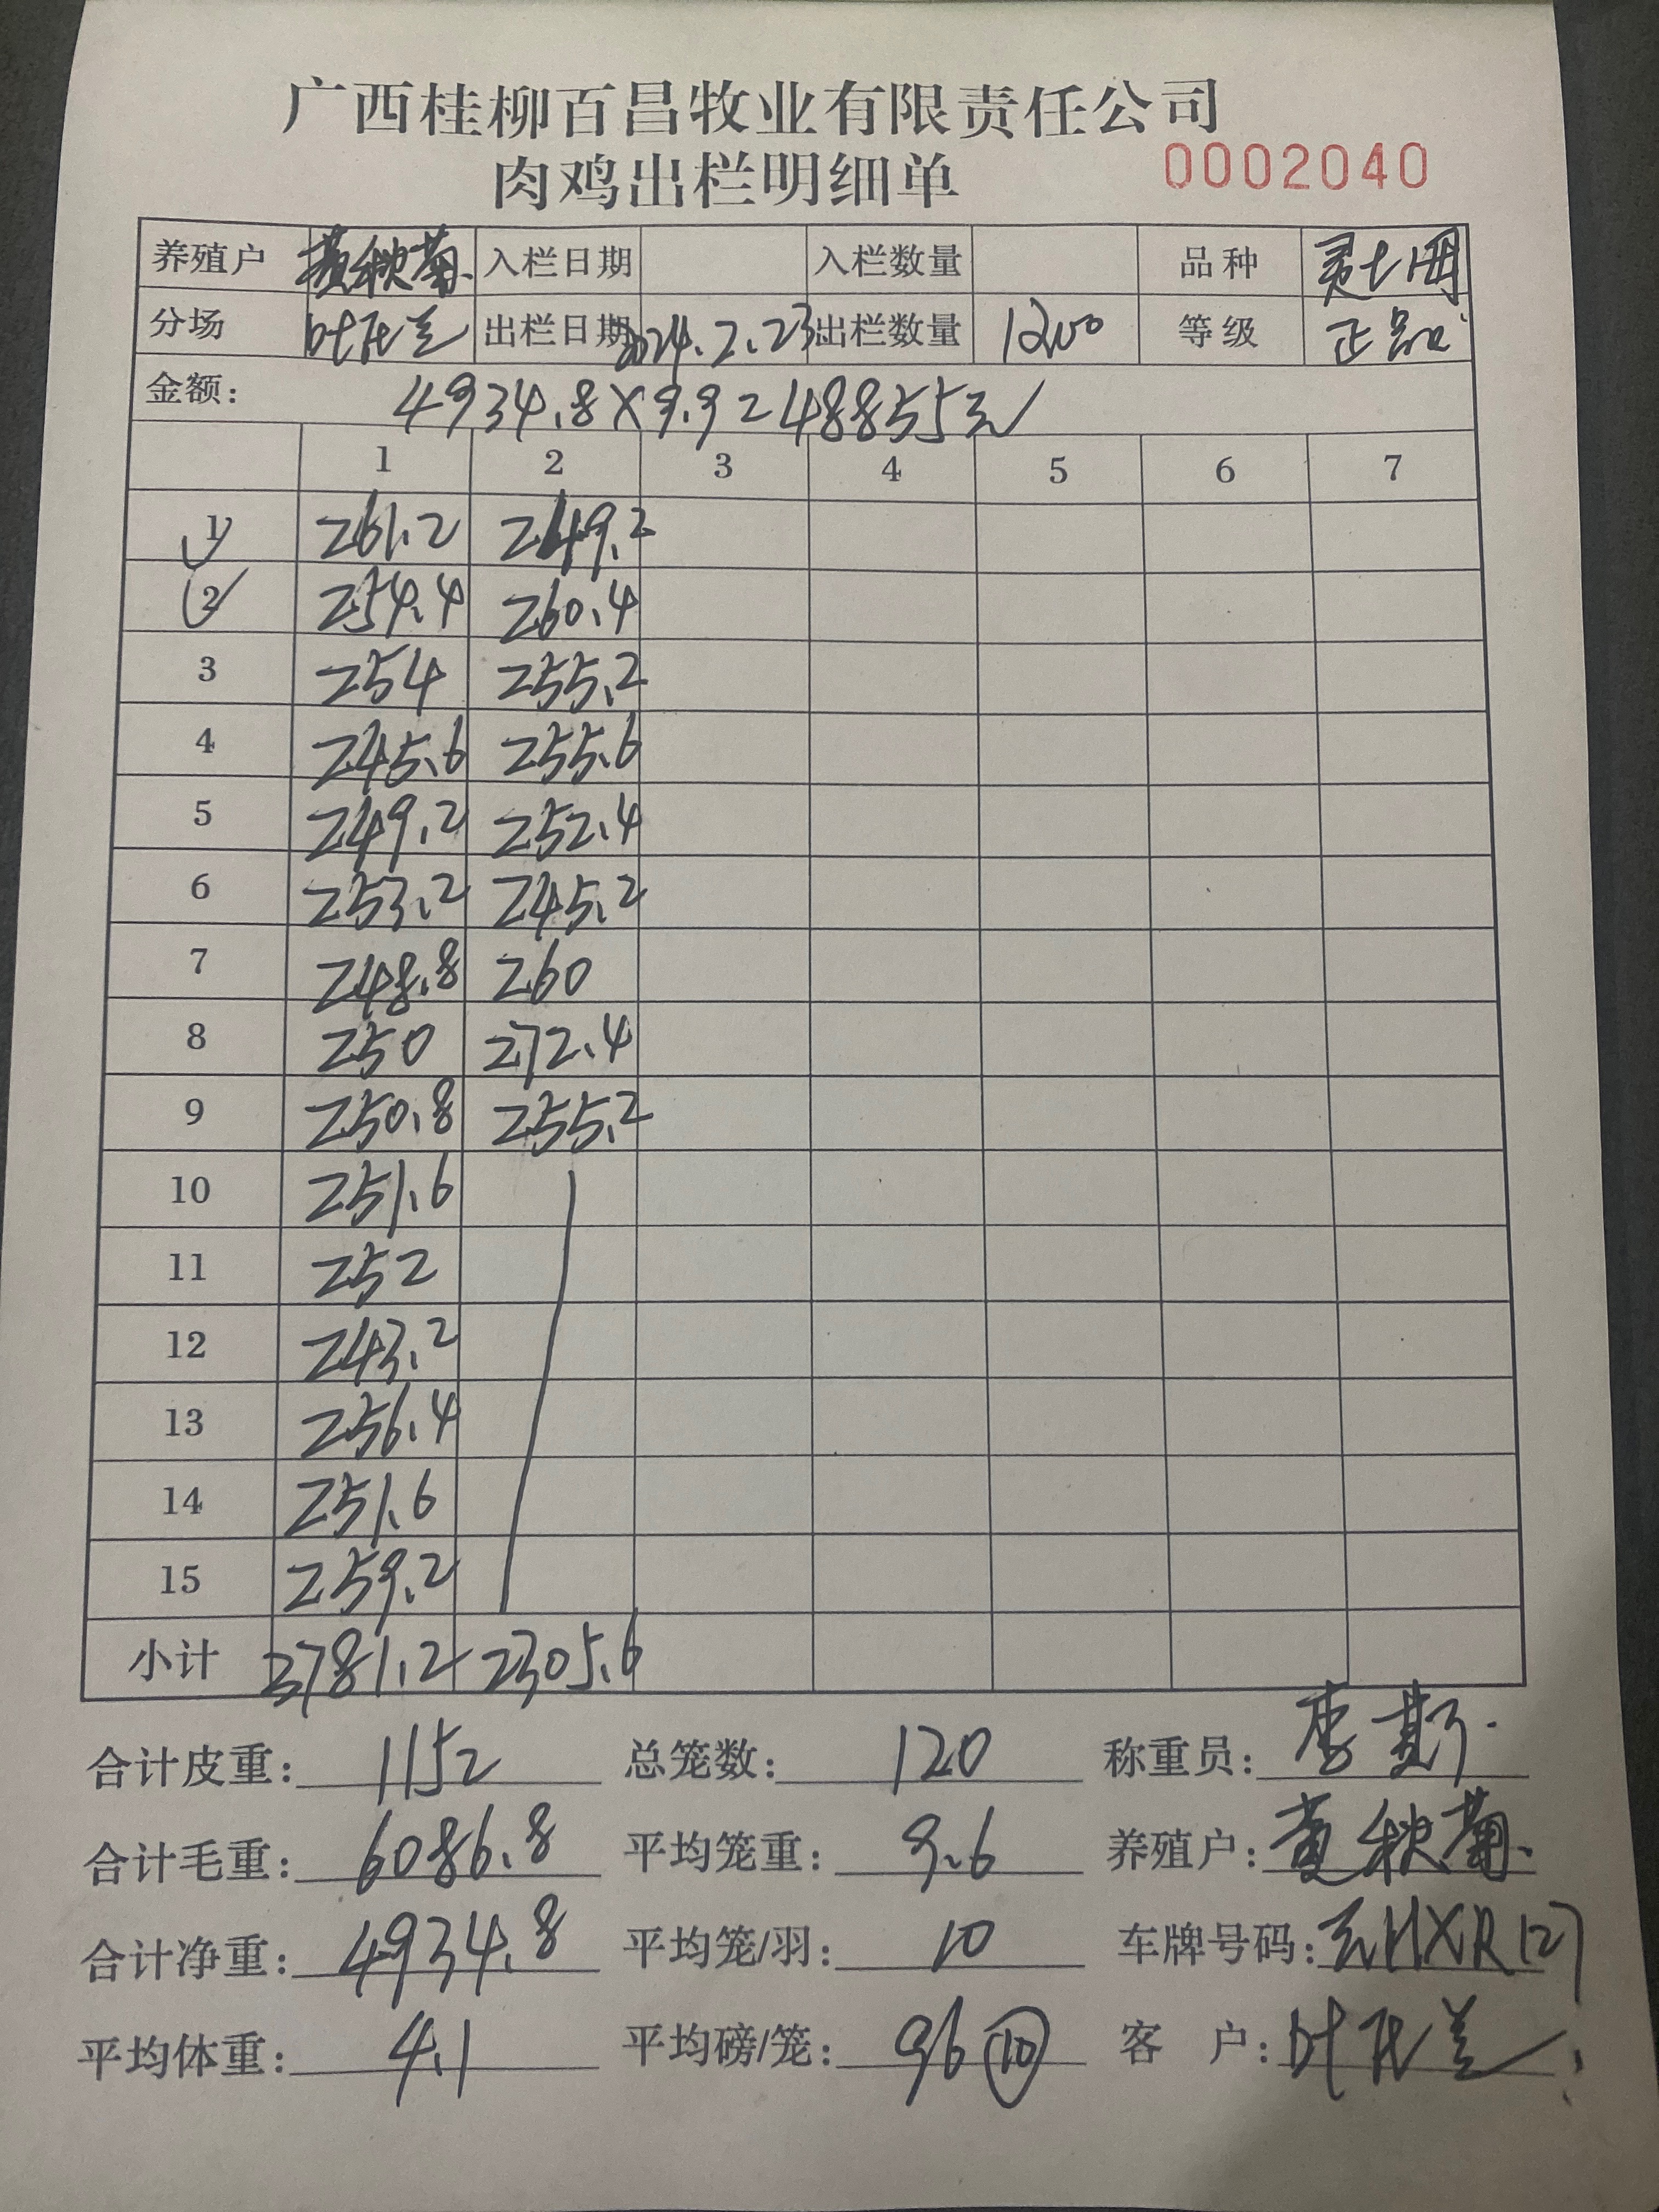 广西桂柳百昌牧业有限责任公司
肉鸡出栏明细单 0002040
养殖户 黄秋菊 入栏日期 入栏数量 品种
分场 出栏日期 2024.2.23 出栏数量 1200 等级 正品
金额: 4934.8×9.9=48855元
1 2 3 4 5 6 7
1 261.2 249.2
2 254.4 260.4
3 254 255.2
4 245.6 255.6
5 249.2 252.4
6 253.2 245.2
7 248.8 260
8 250 272.4
9 250.8 255.2
10 251.6
11 252
12 243.2
13 256.4
14 251.6
15 259.2
小计 3781.2 2305.6
合计皮重: 1152 总笼数: 120 称重员: 李斯
合计毛重: 6086.8 平均笼重: 9.6 养殖户: 黄秋菊
合计净重: 4934.8 平均笼/羽: 10 车牌号码: 云HXR127
平均体重: 4.1 平均磅/笼: 96 10 客 户: